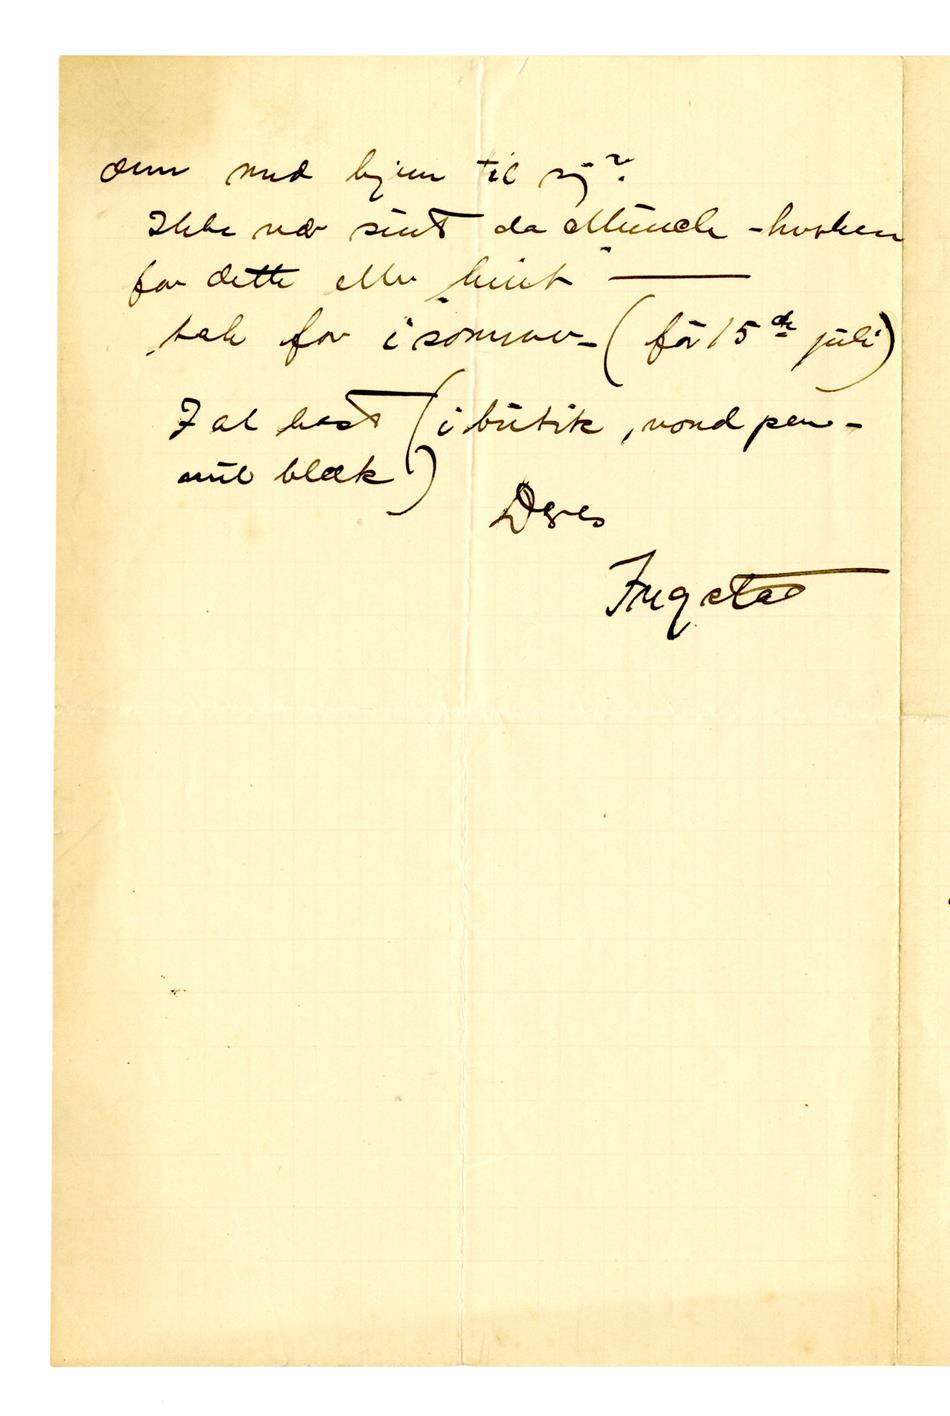 dem med hjem til sig?
Ikke vær sint da Munch – hverken
for dette eller hint ———
tak for i sommer – (før 15de juli)
I al hast (i butik, vond pen –
mit blæk)
Deres